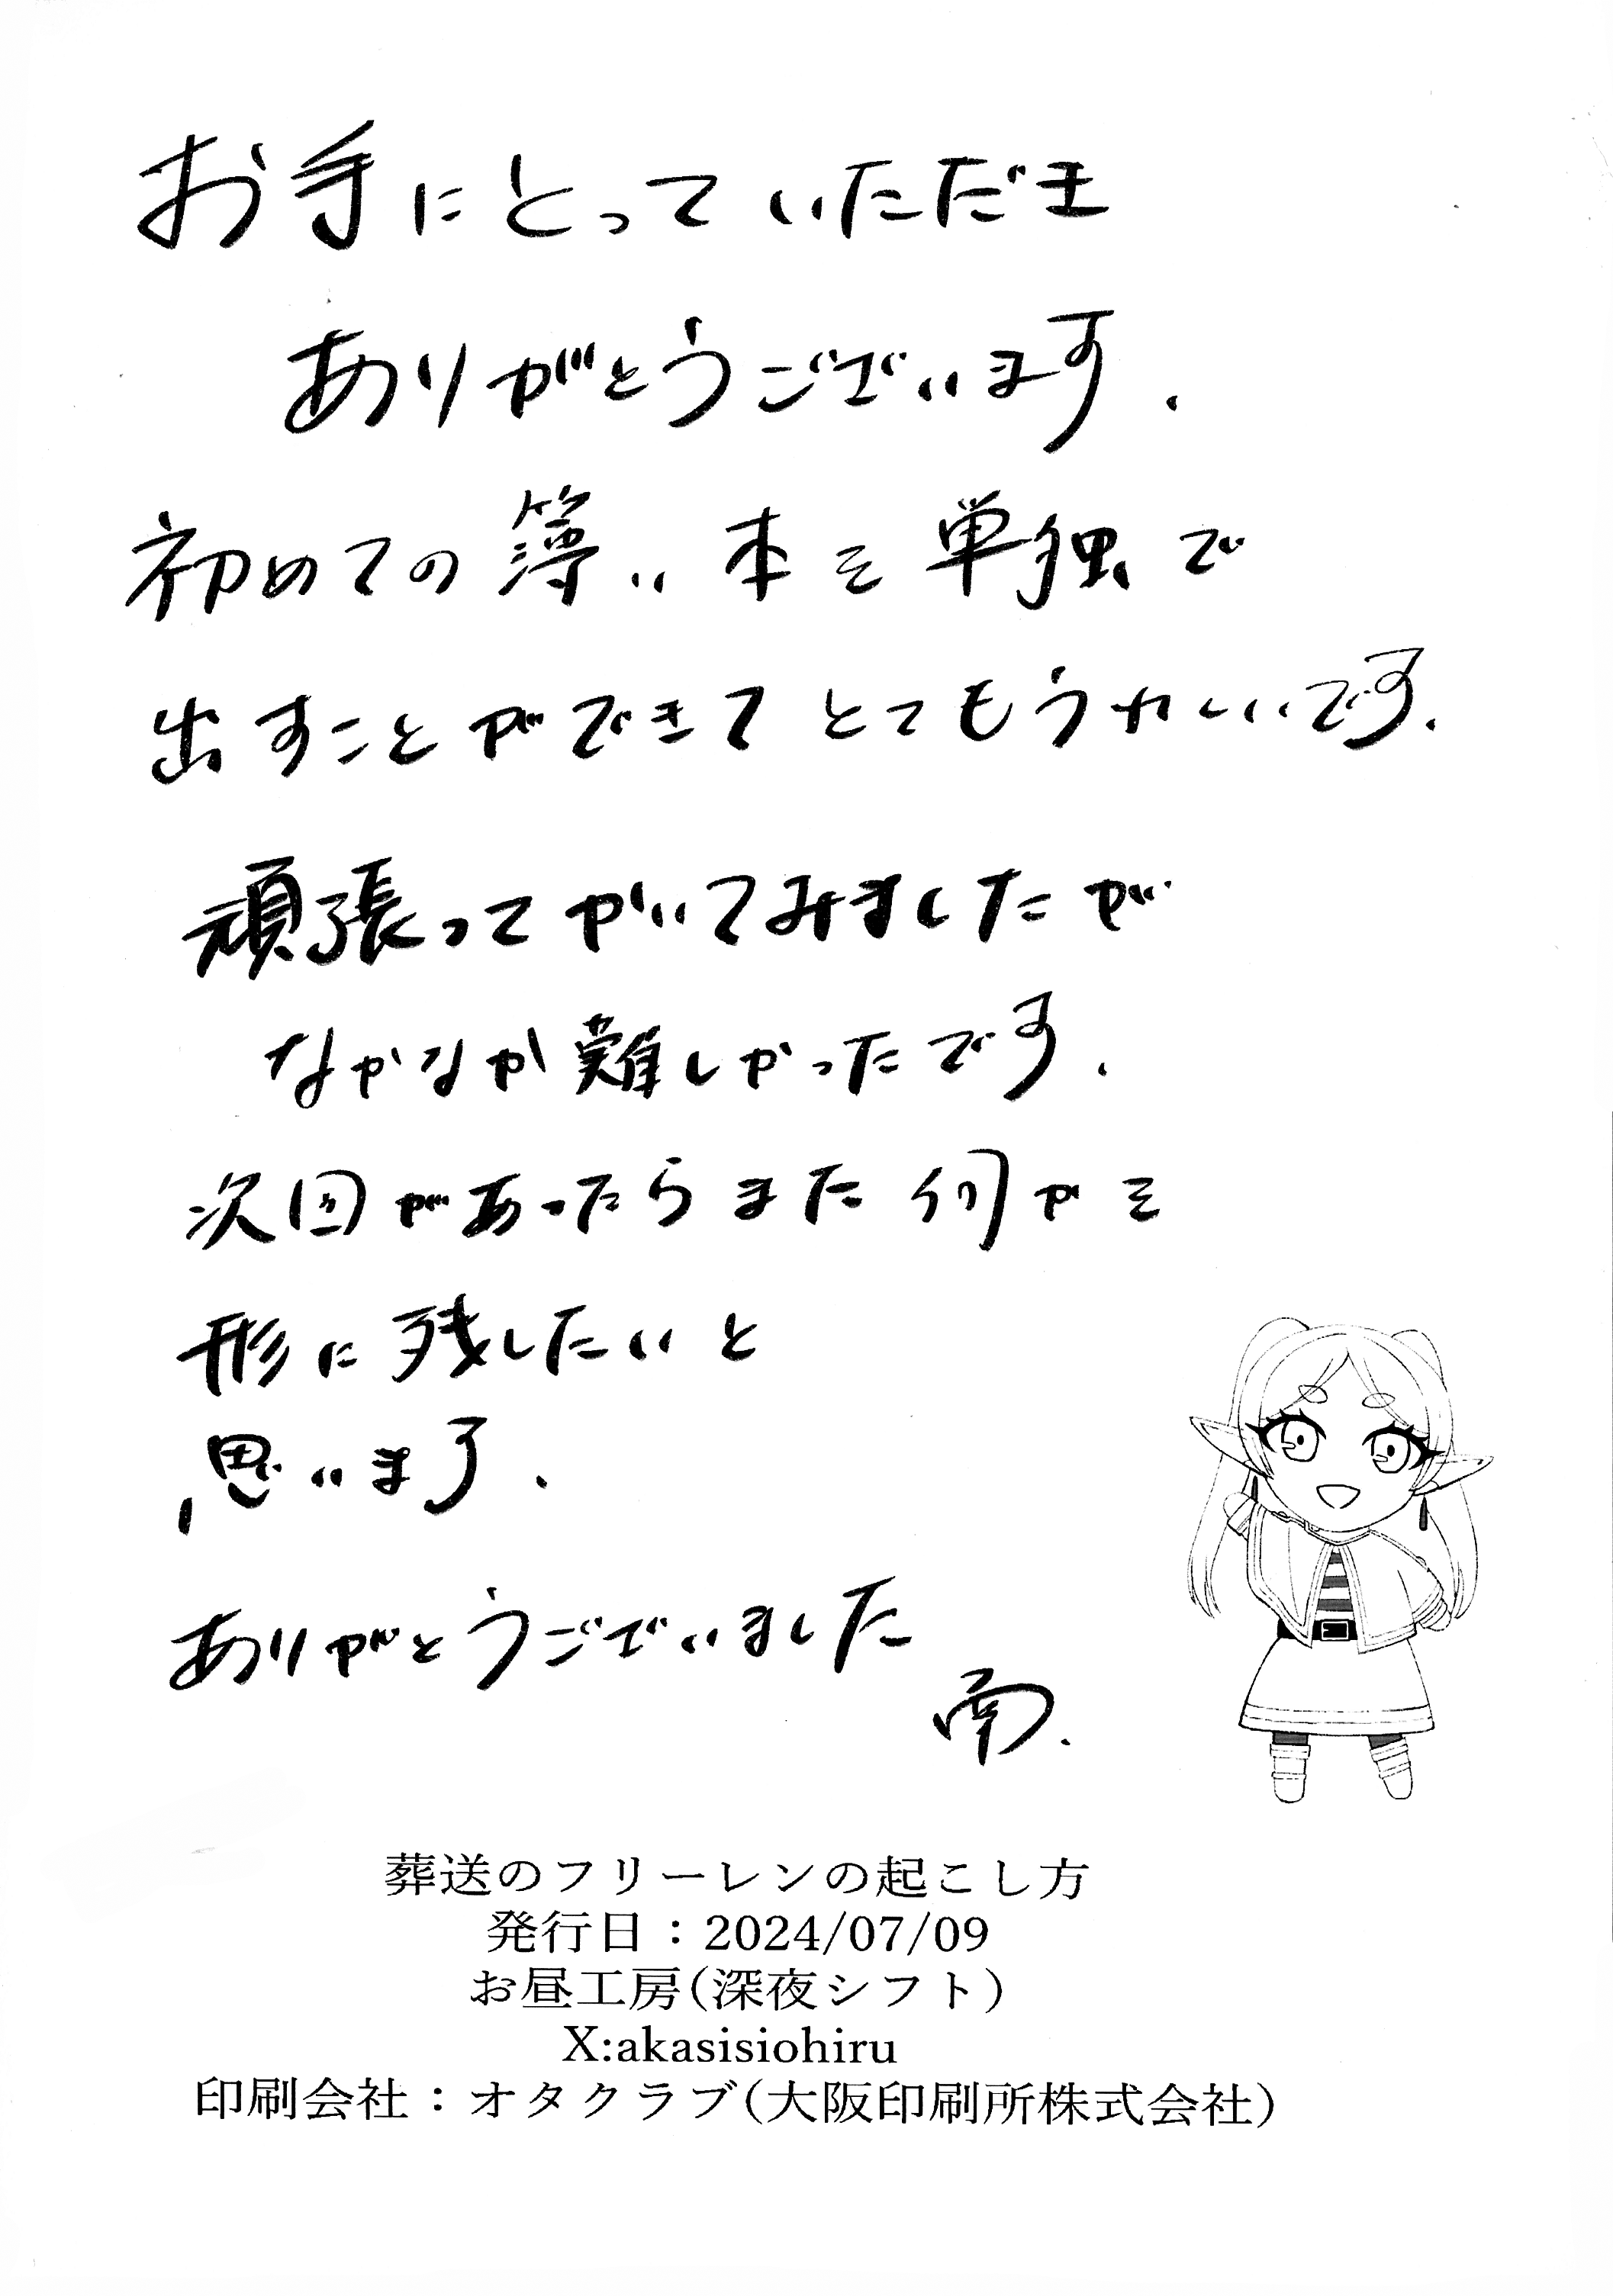 お手にとっていただき
ありがとうございます.
初めての簿い本を単独で
出すことができてとてもうれしいです.
頑張ってかいてみましたが
なかなか難しかったです.
次回があったらまた何かを
形に残したいと
思います.
ありがとうございました
南.
葬送のフリーレンの起こし方
発行日：2024/07/09
お昼工房(深夜シフト)
X:akasisiohiru
印刷会社：オタクラブ(大阪印刷所株式会社)